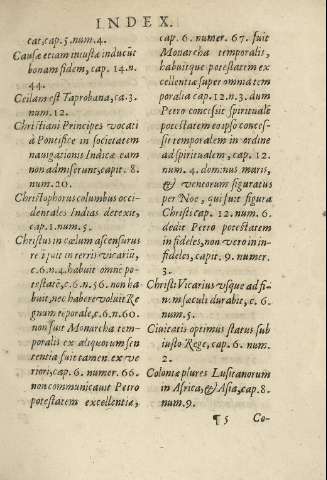 INDEX.
cat, cap. 5. num. 4.
Causæ etiam iniustæ inducūt
bonam fidem, cap. 14. n.
44.
Ceilam est Taprobana, ca. 3.
num. 12.
Christiani Principes vocati
à Pontifice in societatem
nauigationis Indicæ eam
non admiserunt, capit. 8.
num. 20.
Christophorus columbus occi-
dentales Indias detexit,
cap. 1. num. 5.
Christus in cælum ascensurus
in terris vicariū,
c. 6. n. 4. habuit omnē po-
testatē, c. 6. n. 56. non ha
buit, nec habere voluit Re
gnum tēporale, c. 6. n. 60.
non fuit Monarcha tem-
poralis ex aliquorum sen
tentia fuit tamen ex ve
riori, cap. 6. numer. 66.
non communicauit Petro
potestatem excellentiæ,
cap. 6. numer. 67. fuit
Monarcha temporalis,
habuitque potestatem ex
cellentiæ super omnia tem
poralia cap. 12. n. 3. dum
Petro concessit spiritualē
potestatem eo ipso conces-
sit temporalem in ordine
ad spiritualem, cap. 12.
num. 4. dominus maris,
& ventorum figuratus
per Noe, qui fuit figura
Christi cap. 12. num. 6.
dedit Petro potestatem
in fideles, non vero in in-
fideles, capit. 9. numer.
3.
Christi Vicarius vsque ad fi-
nem sæculi durabit, c. 6.
num. 5.
Ciuitatis optimus status sub
iusto Rege, cap. 6. num.
2.
Coloniæ plures Lusitanorum
in Africa, & Asia, cap. 8.
num. 9.
¶ 5 Co-